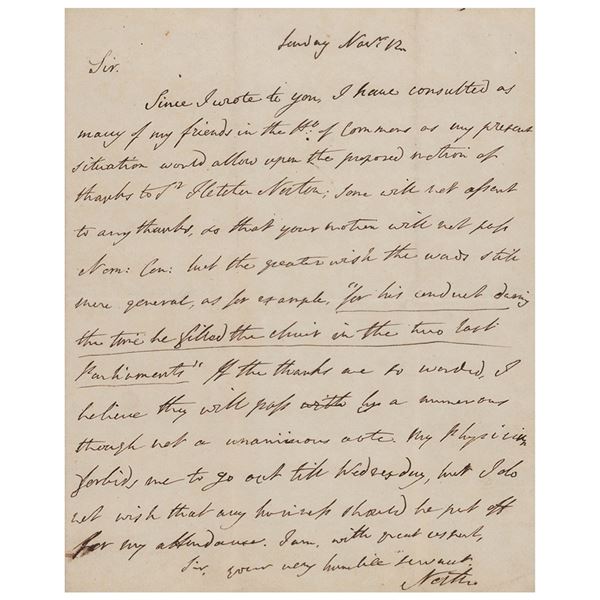 Sunday Novr. 12
Sir.
Since I wrote to you, I have consulted as
many of my friends in the Ho: of Commons as my present
situation would allow upon the proposed motion of
thanks to Sr Fletcher Norton; some will not assent
to any thanks, so that your motion will not pass
Nem: Con: but the greater wish the words still
more general, as for example, "for his conduct during
the time he filled the chair in the two last
Parliaments" If the thanks are so worded, I
believe they will pass with by a numerous
though not a unanimous vote. My Physician
forbids me to go out till Wednesday, but I do
not wish that any business should be put off
for my attendance. I am, with great respect,
Sir, your very humble servant,
North